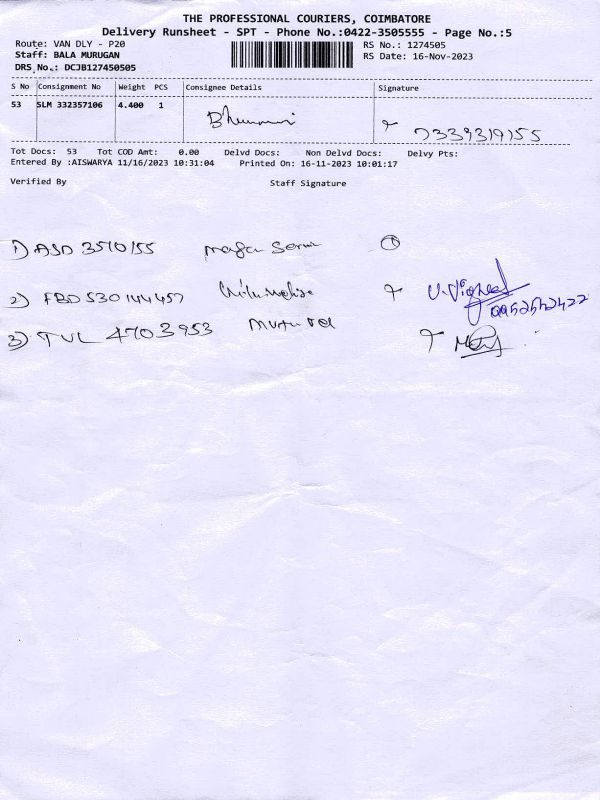 THE PROFESSIONAL COURIERS, COIMBATORE
Delivery Runsheet - SPT - Phone No.:0422-3505555 - Page No.:5
Route: VAN DLY - P20
Staff: BALA MURUGAN
DRS No.: DCJB127450505
RS No.: 1274505
RS Date: 16-Nov-2023
S No Consignment No Weight PCS Consignee Details Signature
53 SLM 332357106 4.400 1 7339319155
Tot Docs: 53 Tot COD Amt: 0.00 Delvd Docs: Non Delvd Docs: Delvy Pts:
Entered By :AISWARYA 11/16/2023 10:31:04 Printed On: 16-11-2023 10:01:17
Verified By Staff Signature
1) ASD 3510155
2) FBD 530144457
3) TVL 4703953